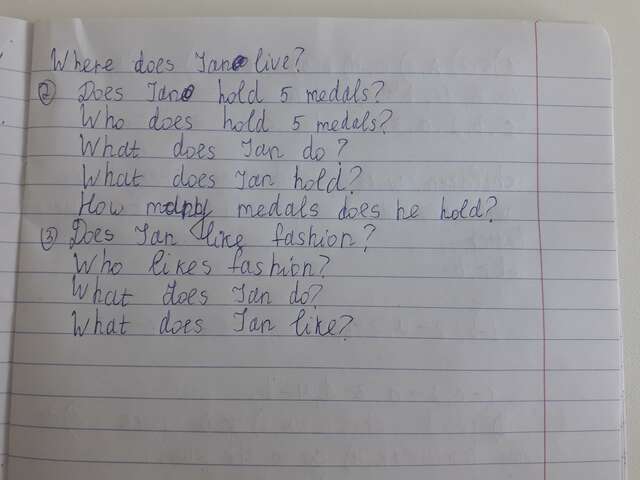 Where does Ian live?
② Does Ian hold 5 medals?
Who does hold 5 medals?
What does Ian do?
What does Ian hold?
How many medals does he hold?
③ Does Ian like fashion?
Who likes fashion?
What does Ian do?
What does Ian like?